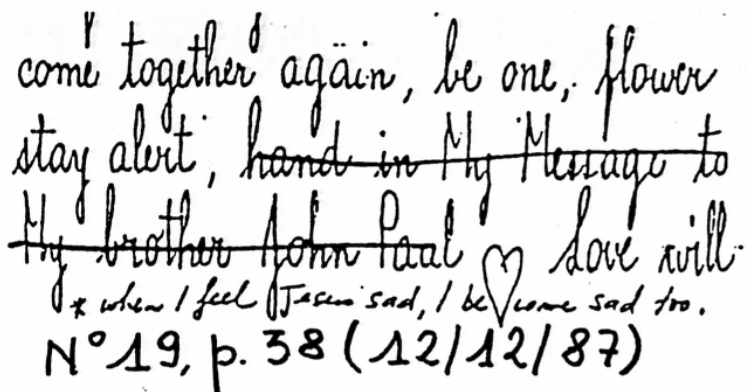 come together again, be one, flower
stay alert, hand in My Message to
My brother John Paul ♡ Love will
* when I feel Jesus sad, I become sad too.
N° 19, p. 38 (12/12/87)